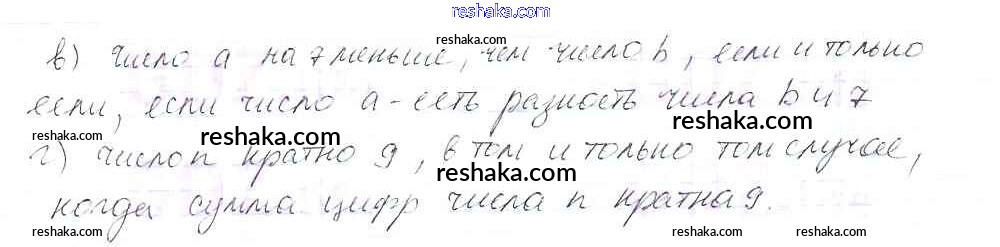 reshaka.com
reshaka.com reshaka.com reshaka.com
в) число a на 7 меньше, чем число b, если и только
если, если число a - есть разность числа b и 7
reshaka.com reshaka.com reshaka.com
г) число n кратно 9, в том и только том случае,
reshaka.com reshaka.com reshaka.com
когда сумма цифр числа n кратна 9.
reshaka.com reshaka.com reshaka.com